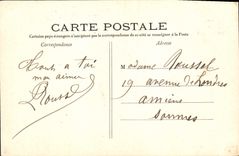 CARTE POSTALE
Certains pays étrangers n'acceptant pas la correspondance de ce côté se renseigner à la Poste
Correspondance
Adresse
Tout a toi
mon aimée
Roussel
Madame Roussel
19 avenue de Londres
amiens
somme